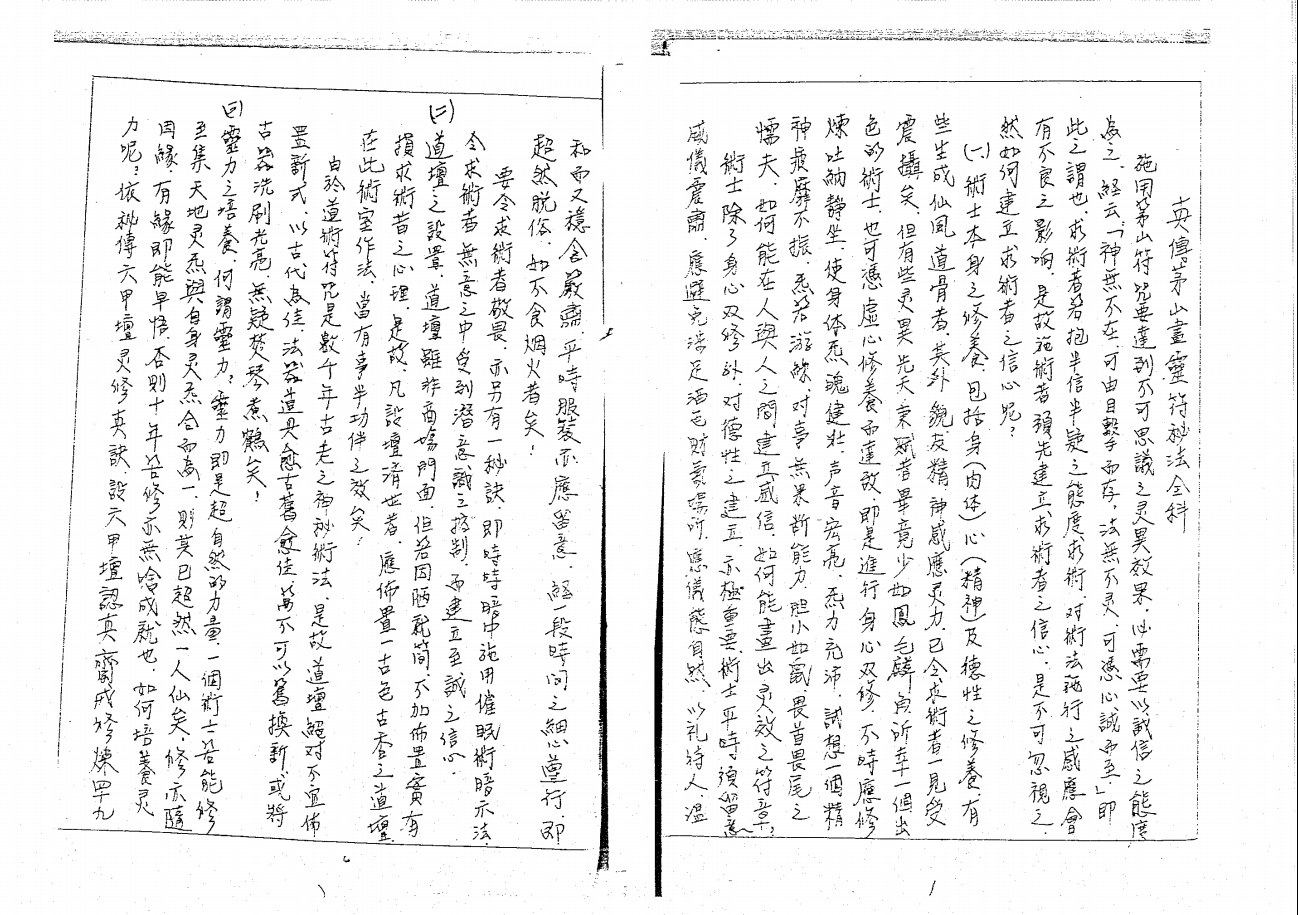 真傳茅山畫靈符秘法全科
施用茅山符咒要達到不可思議之灵異效果，必需要以誠信之態度
為之，経云「神無不在，可由目擊而存，法無不灵，可憑心誠而至」即
此之謂也，求術者若抱半信半疑之態度求術，对術法施行之感應會
有不良之影响，是故施術者須先建立求術者之信心，是不可忽視之，
然如何建立求術者之信心呢？
(一)術士本身之修養，包括身（肉体）心（精神）及德性之修養，有
些生成仙風道骨者，其外貌及精神感應灵力，已令求術者一見受
震攝矣，但有些灵異先天禀賦者畢竟少如鳳毛麟角，所幸一個出
色的術士，也可憑虛心修養而達致，即是進行身心双修，不時應修
煉吐納靜坐，使身体炁魄健壯，声音宏亮，炁力充沛，試想一個精
神疲靡不振，炁若游絲，对事無果断能力，胆小如鼠，畏首畏尾之
懦夫，如何能在人與人之間建立威信，如何能畫出灵效之符章？
術士除了身心双修外，对德性之建立，亦極重要，術士平時須留意
威儀震肅，應避免涉足酒色財氣場所，應儀態自然，以礼待人，溫
和而又穩含嚴肅，平時服裝亦應留意，経一段時间之細心遵行，即
超然脱俗，如不食烟火者矣！
要令求術者敬畏，亦另有一秘訣，即時時暗中施用催眠術暗示法，
令求術者無意之中受到潛意識之控制，而建立至誠之信心．
(二)道壇之設置，道壇雖非商塲門面，但若因陋就简，不加佈置實有
損求術者之心理，是故，凡設壇濟世者，應佈置一古色古香之道壇，
在此術室作法，當有事半功伴之效矣！
由於道術符咒是數千年古老之神秘術法，是故道壇絕对不宜佈
置新式，以古代為佳，法器道具愈古舊愈佳，萬不可以舊換新或將
古器洗刷光亮，無疑焚琴煮鶴矣！
(三)靈力之培養，何謂靈力？靈力即是超自然的力量，一個術士若能修
至集天地灵炁與自身灵炁合而為一，則其已超然一人仙矣，修亦隨
因緣，有緣即能早悟，否則十年苦修亦無啥成就也，如何培養灵
力呢？依祕傳六甲壇灵修真訣，設六甲壇認真齋戒修煉四九